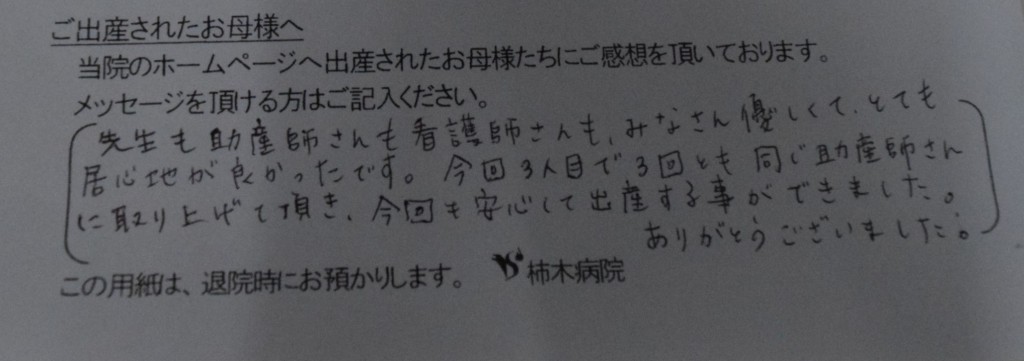 ご出産されたお母様へ
当院のホームページへ出産されたお母様たちにご感想を頂いております。
メッセージを頂ける方はご記入ください。
先生も助産師さんも看護師さんも、みなさん優しくて、とても
居心地が良かったです。今回3人目で3回とも同じ助産師さん
に取り上げて頂き、今回も安心して出産する事ができました。
ありがとうございました。
この用紙は、退院時にお預かりします。 柿木病院